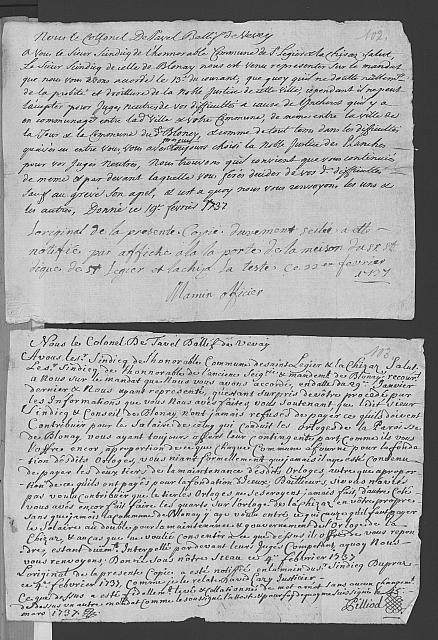 102.
Nous le Collonel De Tavel Ballif de Vevey
A vous le Sieur Sindicq de l'honnorable Commune de St Legier & la Chiesaz, Salut,
Le Sieur Sindicq de celle de Blonay nous est venu representer sur le mandat
que nous vous avons accordé le 13e du courant, que quoy qu'il ne doutte nullement
de la probité et droitture de la Noble Justice de cette Ville, cependant il ne peut
l'accepter pour Juges neutres de vos difficultés a cause de qu'il y a
en commun entre la dte Ville & votre Commune, de meme entre la ville de
la Tour & le Commune du St Blonay, & comme de tout tems dans les difficultés
qu'avés eu entre vous, vous avés toujours choisi la Noble Justice des Planches
pour vos Juges Neutres, Nous trouvons qu'il convient que vous continuiés
de meme & par devant laquelle vous ferés decider de vos dtes difficultés
sauf au grevé son apel, & c'est a quoy nous vous renvoyons les uns &
les autres, Donné ce 19e fevrier 1737
L'original de la presente Copie duement sellé a esté
notifié par affiche a la porte de la maison du Sr Sin
dique de St Legier et la chiesa Le teste ce 22e fevrier
1737
Mamin officier
103
Nous le Colonel De Tavel Ballif de Vevay
A vous le Sr Sindicq de l'honorable Commune de Saint Legier & la Chizaz, Salut,
Le Sr Sindicq de l'honnorable de l'ancienne Seigrie & mandement de Blonay recourt
a Nous sur le mandat que Nous vous avons accordé, en datte du 29e Janvier
dernier & Nous ayant representé, qu'estant surpris de votre procedé par
les Informations que vous Nous avés faittes, vous soutenant que ledit Sieur
Sindicq & Conseil de Blonay n'ont jamais refusé de payer ce qu'ils doivent
Contribuer pour le Salaire de celuy qui Conduit les Orloges de la Paroisse
de Blonay, vous ayant toujours offert leur contingente part comme ils vous
l'offre encor, a proportion de ce que chaque Commune a fournit pour la fonda
tion desdits Orloges, vous niant formellement que jamais ils ayent estés Coutumé
de payer les deux tiers de la maintenance desdits Orloges, autre que a propor
tion de ce qu'ils ont payés pour la fondation d'iceux, D'ailleurs, si vous n'aviés
pas voulu Contribuer que le tier les Orloges ne se seroyent jamais fait, d'autre Costé
vous avés encor fait faire les quarts sur l'orloge de la Chizaz en votre propre
sans que jamais la Commune de Blonay y aye voulu entré ce qui fait qu'il faut payer
le Salaire au double pour la maintenance & gouvernement de l'Orloge de la
Chizaz, & au cas que ne voulié Consentir a ce que dessus ils offre de vous repon
dre, estant duement Interpellé par devant leurs Juges Competans a quoy Nous
vous renvoyons. Donné sous notre Sceau ce 4e febvrier 1737
L'original de la presente Copie a esté notiffié en la main du Sr Sindicq Dupraz
ce 4e febvrier 1737, Comme je le relate David Cuaz Justicier
Ce que dessus a esté fidellement levé & collationné de mot a mot sans aucun changement
mars 1737
Pilliod